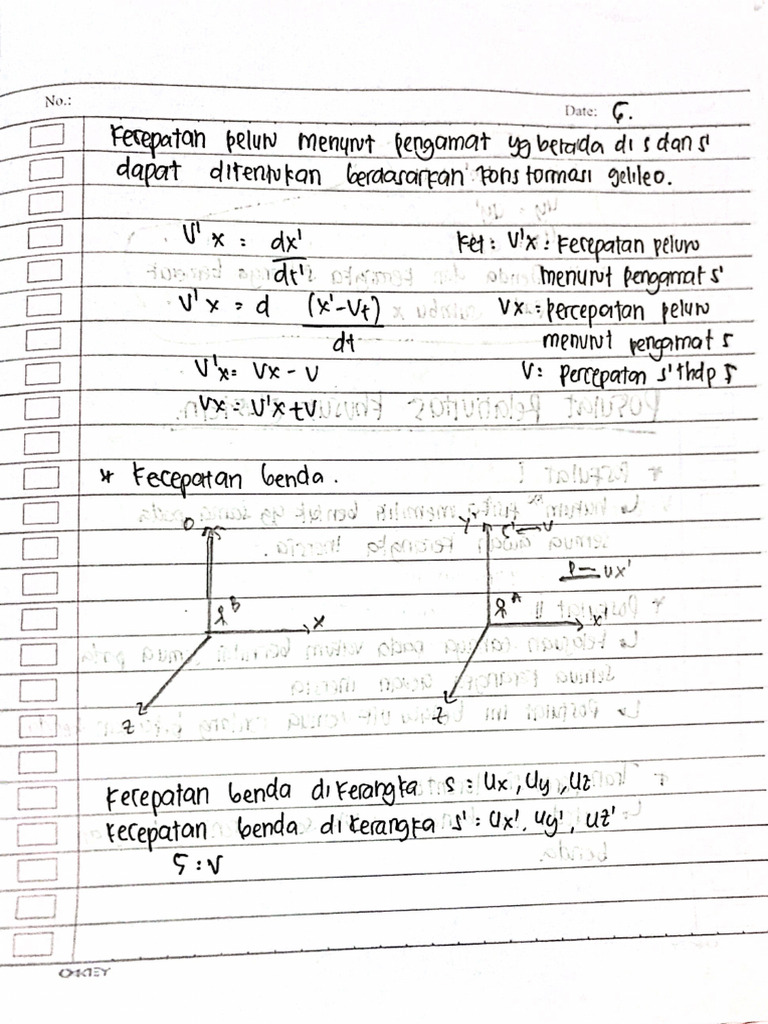 No.:
Date: 5.
Kecepatan peluru menurut pengamat yg berada di s dan s'
dapat ditentukan berdasarkan Tonsformasi gelileo.
V'x = dx'
dt'
Ket: V'x : Kecepatan peluru
menurut pengamat s'
V'x = d (x'-Vt)
dt
Vx = percepatan peluru
menurut pengamat s
V'x = Vx - V
V: percepatan s' thdp s
Vx = V'x + V
* Kecepatan benda.
Y' s' V
ux'
B
x
A
x'
z
z
Kecepatan benda di kerangka s : Ux, Uy, Uz
Kecepatan benda di kerangka s' : Ux', Uy', Uz'
S : V
OKEY